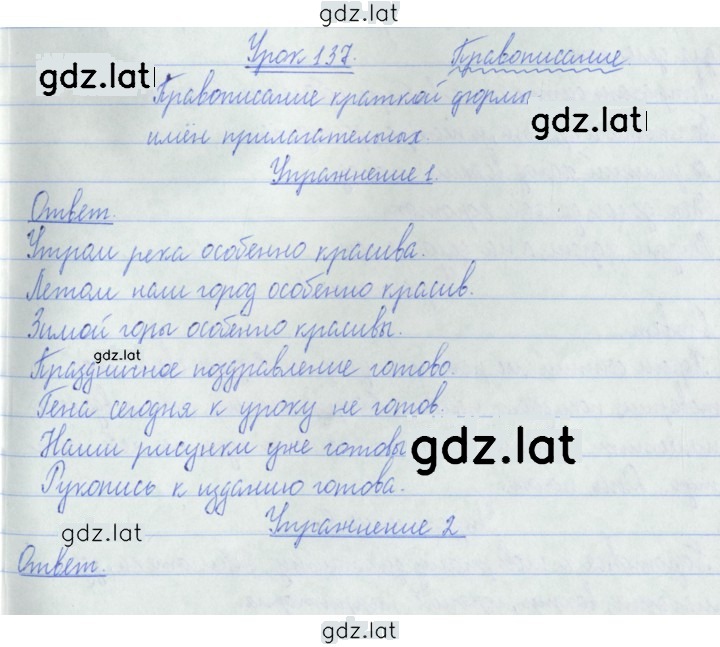 gdz.lat
Урок 137. Правописание
gdz.lat
Правописание краткой формы
gdz.lat
имён прилагательных.
Упражнение 1.
Ответ.
Утром река особенно красива.
Летом наш город особенно красив.
Зимой горы особенно красивы.
gdz.lat
Праздничное поздравление готово.
Гена сегодня к уроку не готов.
Наши рисунки уже готовы
gdz.lat
Рукопись к изданию готова.
Упражнение 2
gdz.lat
Ответ.
gdz.lat